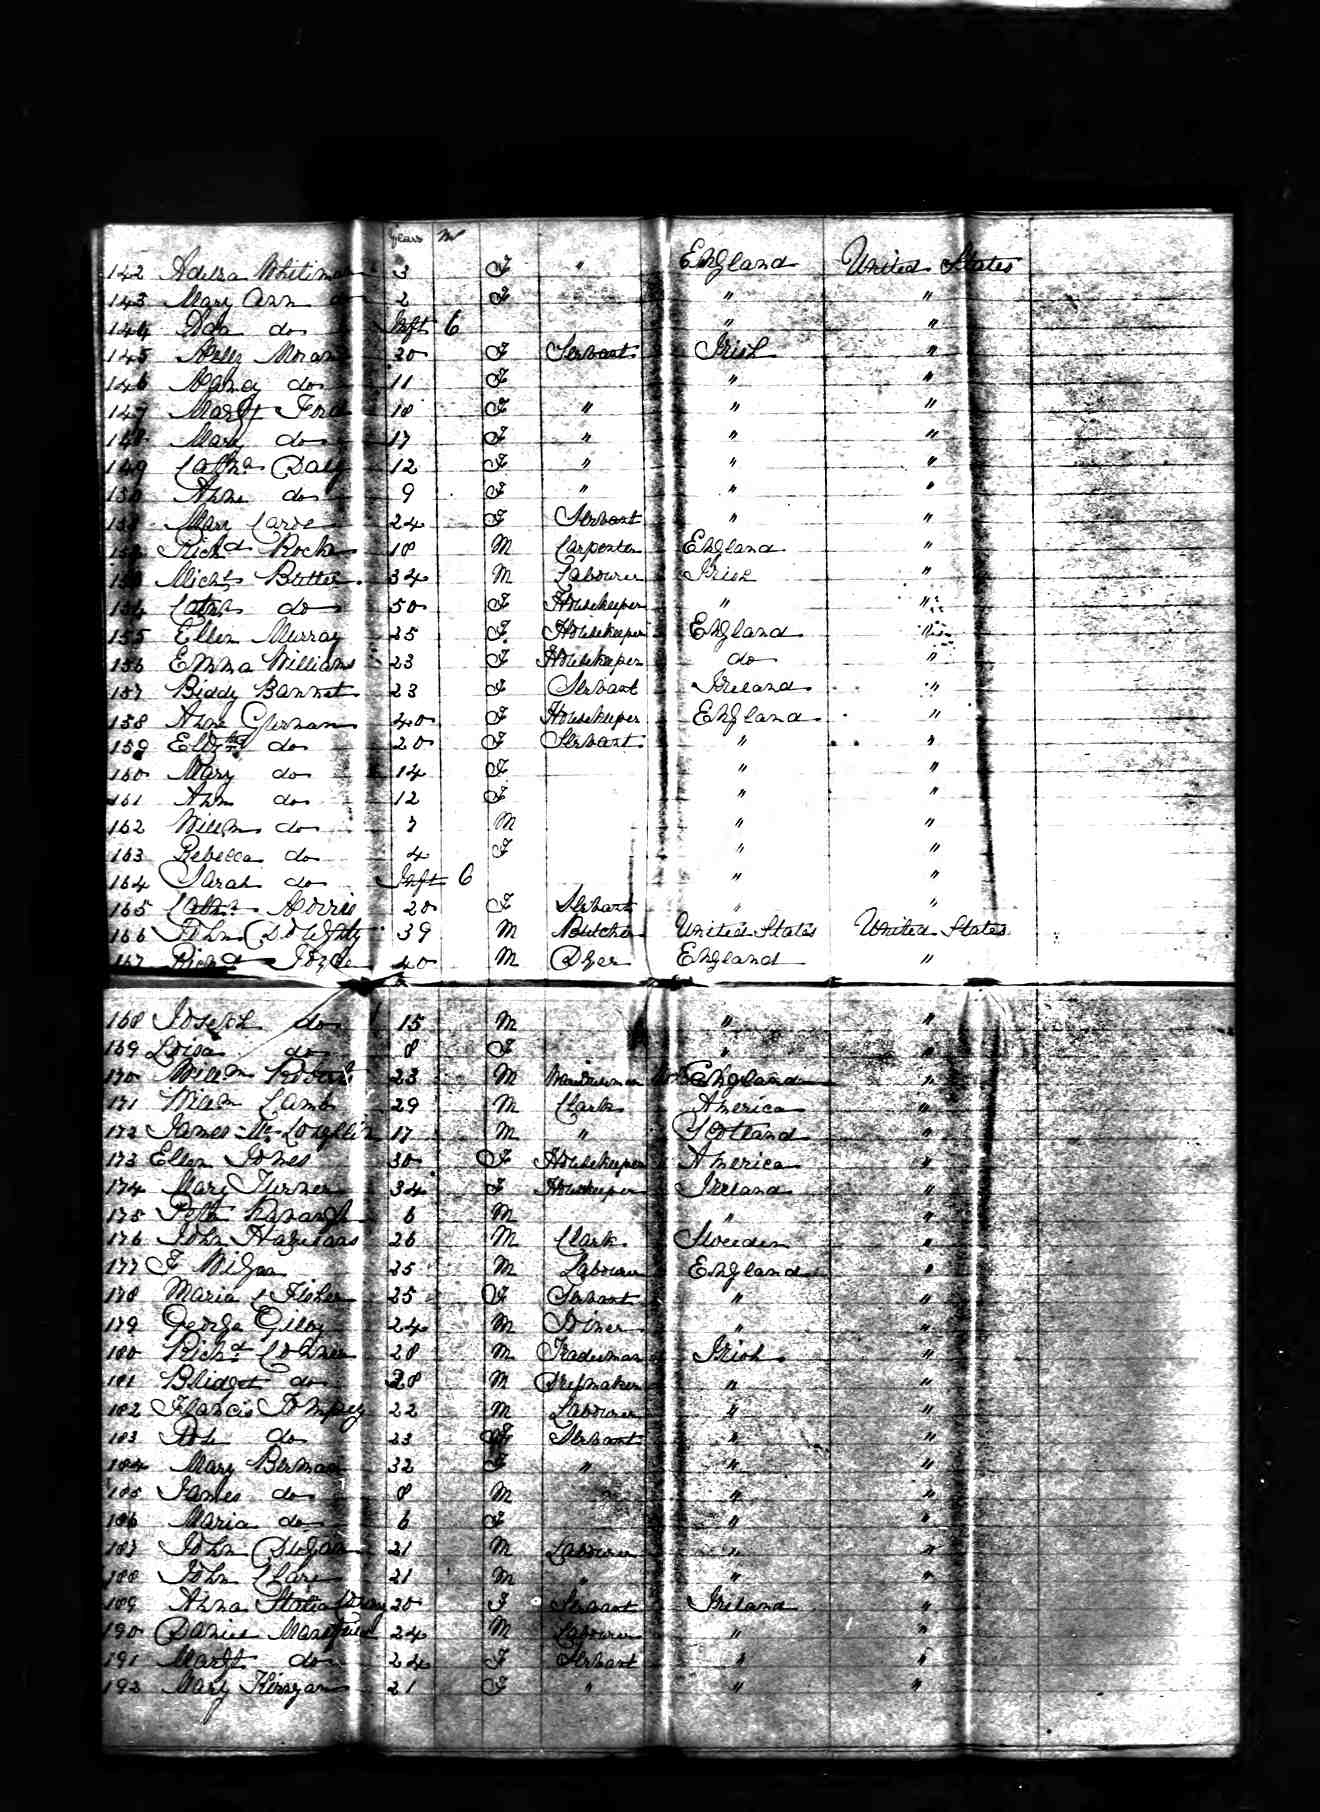 Years M
142 Adelia Whitman 3 F " England United States
143 Mary Ann do 2 F " "
144 Ada do Inft 6 " "
145 Moran 20 F Servant Irish "
146 Nancy do 11 F " "
147 Margt Ford 18 F " " "
148 Mary do 17 F " " "
149 Cathe Daly 12 F " " "
150 Anne do 9 F " " "
151 Mary 24 F Servant " "
152 Richd Roche 18 M Carpenter England "
153 Michl Butter 34 M Labourer Irish "
154 Cathe do 50 F Housekeeper " "
155 Ellen Murray 25 F Housekeeper England "
156 Emma Williams 23 F Housekeeper do "
157 Biddy Bannet 23 F Servant Ireland "
158 Ann 40 F Housekeeper England "
159 Elizth do 20 F Servant " "
160 Mary do 14 F " "
161 Ann do 12 F " "
162 Willm do 7 M " "
163 Rebecca do 4 F " "
164 Sarah do Inft 6 " "
165 Cathe Norris 20 F Servant " "
166 John 39 M Butcher United States United States
167 Richd Joyce 40 M Dyer England "
168 Joseph do 15 M " "
169 Loisa do 8 F " "
170 Willm 23 M England "
171 Wam Lamb 29 M Clark America "
172 James 17 M " Scotland "
173 Ellen Jones 30 F Housekeeper America "
174 Mary Turner 34 F Housekeeper Ireland "
175 Peter Kavanagh 6 M " "
176 John 26 M Clark Sweeden "
177 J 25 M Labourer England "
178 Maria Fisher 25 F Servant " "
179 George Gilroy 24 M Joiner " "
180 Richd 28 M Tradesman Irish "
181 Bridget do 28 M Dressmaker " "
182 Francis 22 M Labourer " "
183 do 23 F Servant " "
184 Mary 32 F " " "
185 James do 8 M " "
186 Maria do 6 F " "
187 John 21 M Labourer " "
188 John Clare 21 M " " "
189 Anna 20 F Servant Ireland "
190 Daniel Mansfield 24 M Labourer " "
191 Margt do 24 F Servant " "
192 Mary 21 F " " "